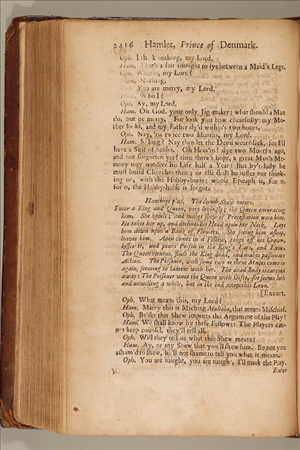 2416 Hamlet, Prince of Denmark.
Oph. I think nothing, my Lord.
Ham. That's a fair thought to lye between a Maid's Legs.
Oph. What is, my Lord?
Ham. Nothing.
Oph. You are merry, my Lord.
Ham. Who I?
Oph. Ay, my Lord.
Ham. Oh God, your only Jig-maker; what should a Man
do, but be merry. For look you how chearfully my Mo-
ther looks, and my Father dy'd within's two hours.
Oph. Nay, 'tis twice two Months, my Lord.
Ham. So long? Nay then let the Devil wear black, for I'll
have a Suit of Sables. Oh Heav'ns! dye two Months ago,
and not forgotten yet? then there's hope, a great Man's Me-
mory may outlive his Life half a Year: But by'r-lady he
must build Churches then; or else shall he suffer not think-
ing on, with the Hobby-horse; whose Epitaph is, For o,
for o, the Hobby-horse is forgot.
Hautboys play. The dumb Shew enters.
Enter a King and Queen, very lovingly; the Queen embracing
him. She kneels, and makes shew of Protestation unto him.
He takes her up, and declines his Head upon her Neck. Lays
him down upon a Bank of Flowers. She seeing him asleep,
leaves him. Anon comes in a Fellow, takes off his Crown,
kisses it, and pours Poison in the King's Ears, and Exit.
The Queen returns, finds the King dead, and makes passionate
Action. The Poisoner, with some two or three Mutes comes in
again, seeming to lament with her. The dead Body is carried
away: The Poisoner wooes the Queen with Gifts, she seems loth
and unwilling a while, but in the end accepts his Love.
[Exeunt.
Oph. What means this, my Lord?
Ham. Marry this is Miching Malicho, that means Mischief.
Oph. Belike this Shew imports the Argument of the Play?
Ham. We shall know by these Fellows: The Players can-
not keep counsel, they'll tell all.
Oph. Will they tell us what this Shew meant?
Ham. Ay, or any Shew that you'll shew him. Be not you
asham'd to shew, he'll not shame to tell you what it means.
Oph. You are naught, you are naught, I'll mark the Play.
Enter